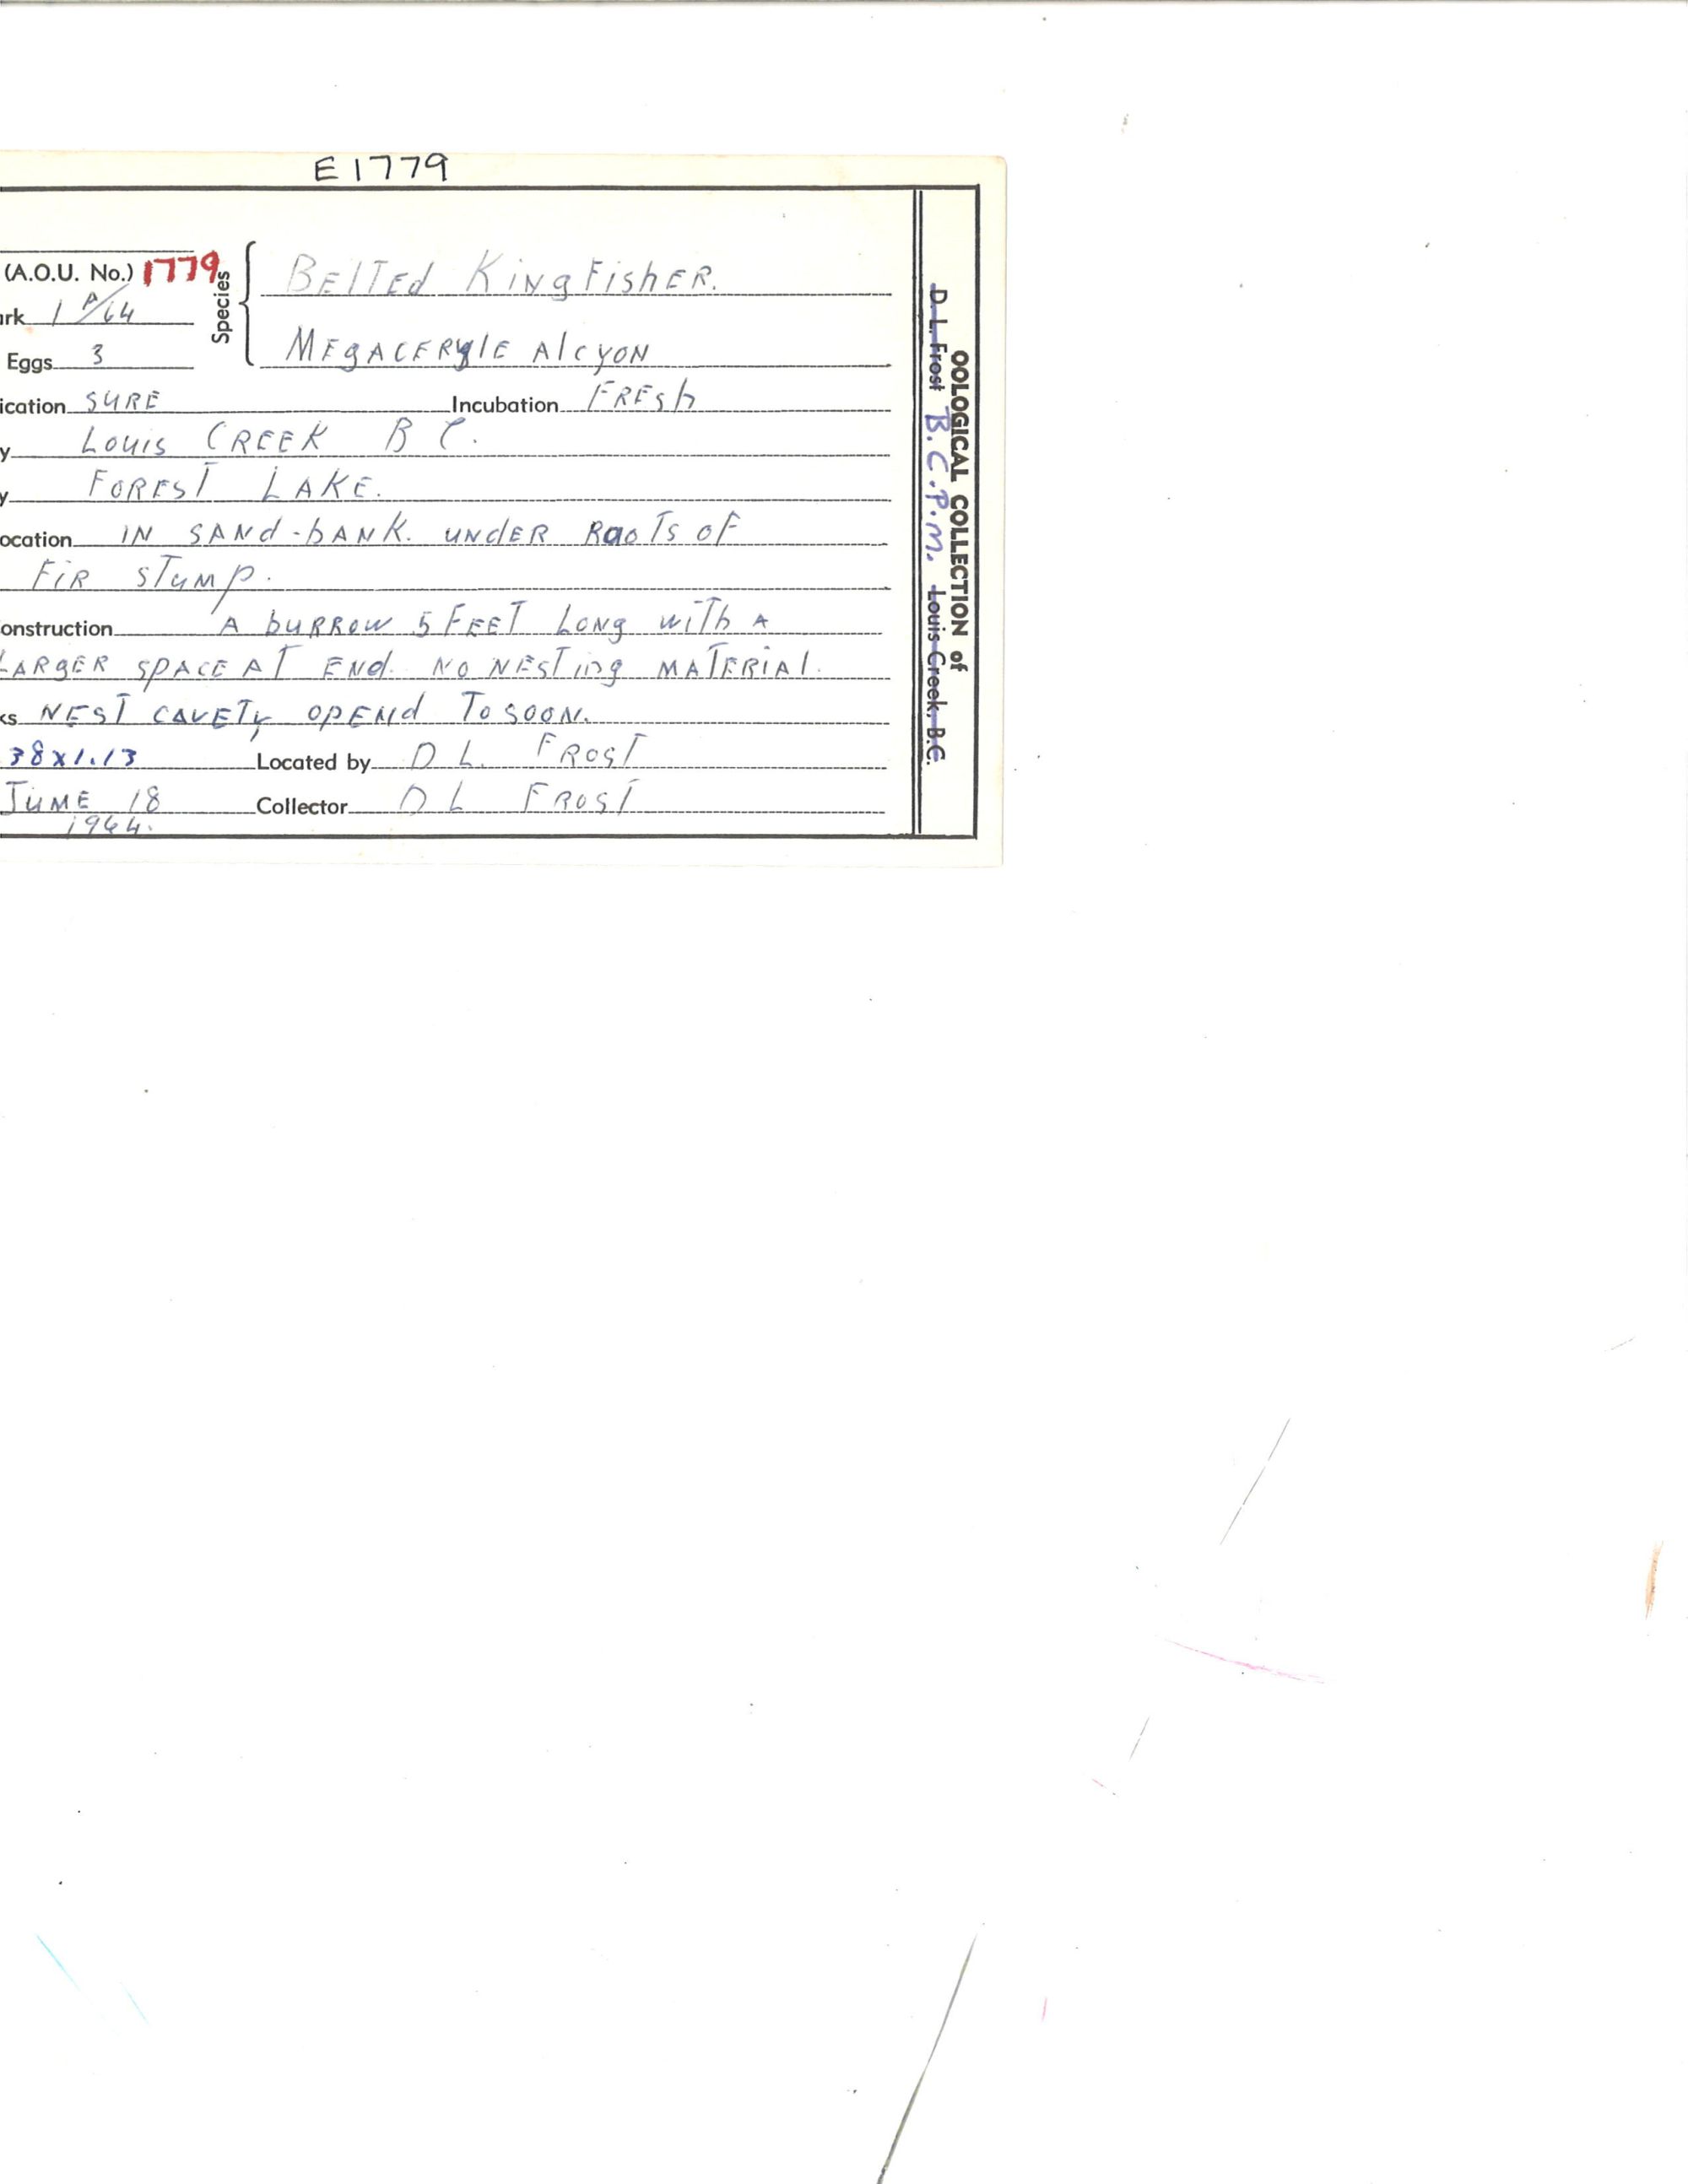 E1779
(A.O.U. No.) 1779
Species
BElTEd KINgFishER.
ark 1 P/64
MEgACERylE AlcyoN
Eggs 3
ication SURE Incubation FRESh
y Louis CREEK B C.
y FOREST LAKE.
ocation IN SANd-bANK. UNdER RooTs oF
FiR STumP.
onstruction A buRRow 5 FEET LoNg wiTh A
LARgER SPACE AT ENd. NO NESTiNg MATERiAl.
ks NEST CAVETy OPENd To SOON.
38x1.13 Located by D L. FROST
JUNE 18 Collector D L FROST
1964.
OOLOGICAL COLLECTION of
D. L. Frost B.C.P.M. Louis Creek, B.C.